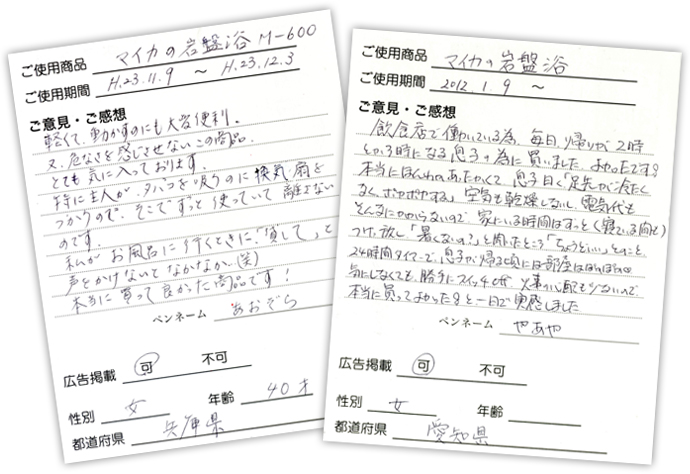 ご使用商品 マイカの岩盤浴 M-600
ご使用期間 H.23.11.9 ～ H.23.12.3
ご意見・ご感想
軽くて、動かすのにも大変便利。
又、危なさを感じさせないこの商品。
とても気に入っております。
特に主人が、タバコを吸うのに換気扇を
つかうので、そこでずっと使っていて離さない
のです。
私がお風呂に行くときに「貸して」と
声をかけないとなかなか…(笑)
本当に買って良かった商品です!
ペンネーム あおぞら
広告掲載 可 不可
性別 女 年齢 40才
都道府県 兵庫県
ご使用商品 マイカの岩盤浴
ご使用期間 2012.1.9 ～
ご意見・ご感想
飲食店で働いている為、毎日、帰りが2時
とか3時になる息子の為に買いました。よかったです。
本当にほんわかあたたかくて、息子曰く「足先が冷たく
なく、ポカポカする」空気も乾燥しないし、電気代も
そんなにかからないので、家にいる時間はずっと(寝ている間も)
つけっ放し「暑くないの?」と聞いたところ「ちょうどいい」とのこと。
24時間タイマーで、息子が帰る頃には部屋はほんわか
気にしなくても、勝手にスイッチoff 火事の心配も少ないので、
本当に買ってよかった♀と一日で実感しました
ペンネーム やあや
広告掲載 可 不可
性別 女 年齢
都道府県 愛知県